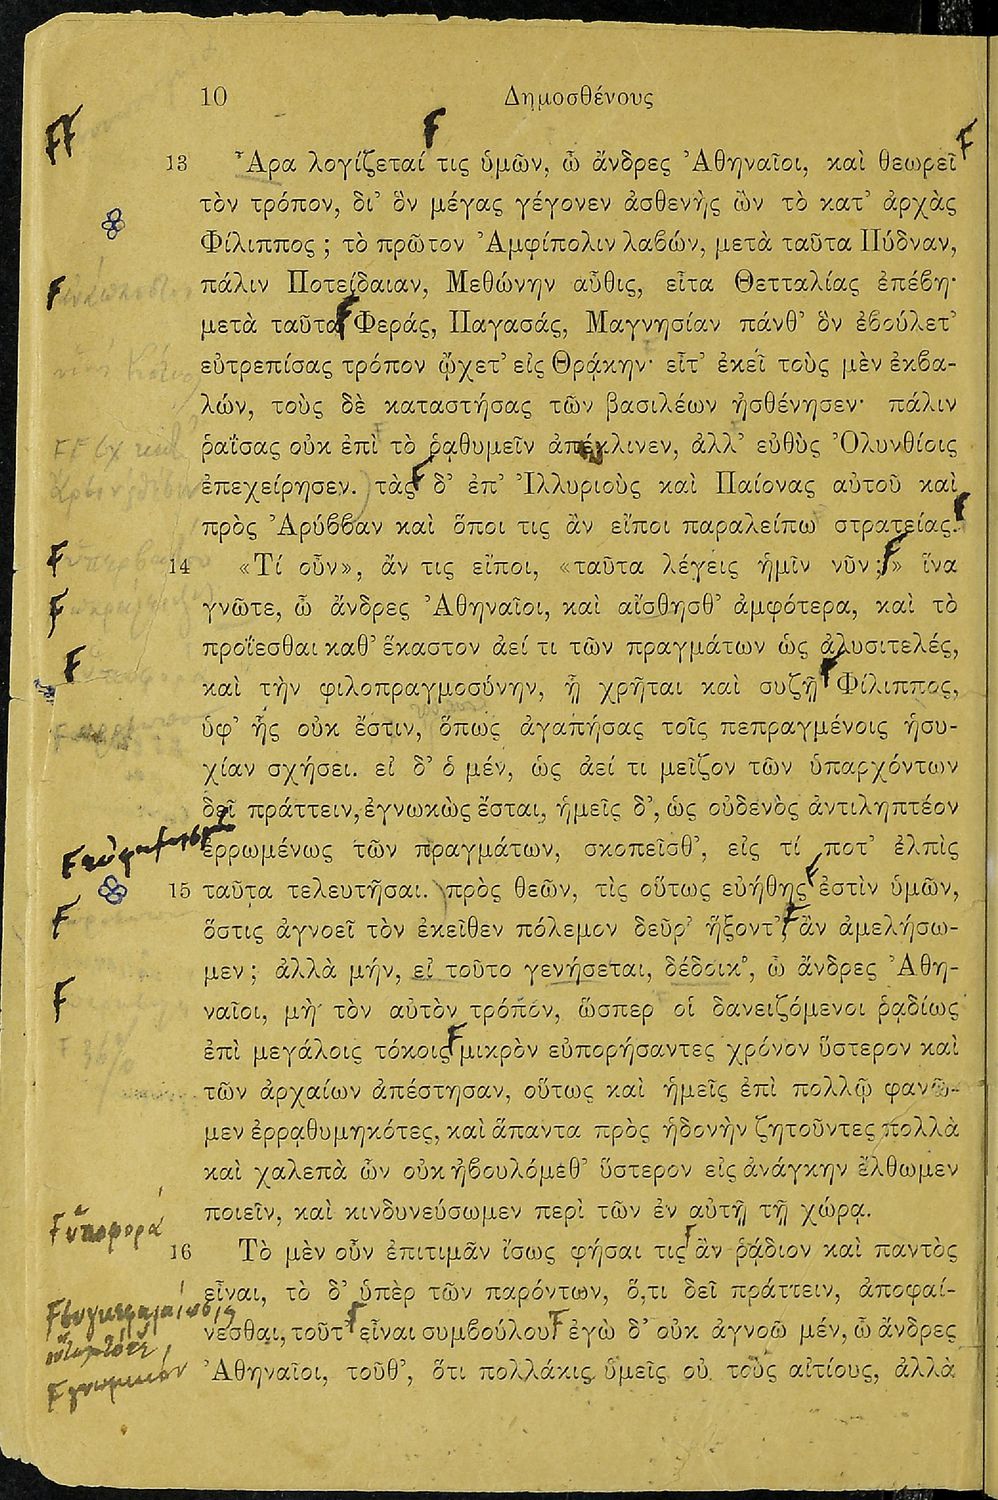 10 Δημοσθένους
13 Ἆρα λογίζεταί τις ὑμῶν, ὦ ἄνδρες Ἀθηναῖοι, καὶ θεωρεῖ
τὸν τρόπον, δι' ὃν μέγας γέγονεν ἀσθενὴς ὢν τὸ κατ' ἀρχὰς
Φίλιππος ; τὸ πρῶτον Ἀμφίπολιν λαβών, μετὰ ταῦτα Πύδναν,
πάλιν Ποτείδαιαν, Μεθώνην αὖθις, εἶτα Θετταλίας ἐπέβη·
μετὰ ταῦτα Φεράς, Παγασάς, Μαγνησίαν πάνθ' ὃν ἐβούλετ'
εὐτρεπίσας τρόπον ᾤχετ' εἰς Θρᾴκην· εἶτ' ἐκεῖ τοὺς μὲν ἐκβα-
λών, τοὺς δὲ καταστήσας τῶν βασιλέων ἠσθένησεν· πάλιν
ῥαΐσας οὐκ ἐπὶ τὸ ῥᾳθυμεῖν ἀπέκλινεν, ἀλλ' εὐθὺς Ὀλυνθίοις
ἐπεχείρησεν. τὰς δ' ἐπ' Ἰλλυριοὺς καὶ Παίονας αὐτοῦ καὶ
πρὸς Ἀρύββαν καὶ ὅποι τις ἂν εἴποι παραλείπω στρατείας.
14 «Τί οὖν», ἄν τις εἴποι, «ταῦτα λέγεις ἡμῖν νῦν ;» ἵνα
γνῶτε, ὦ ἄνδρες Ἀθηναῖοι, καὶ αἴσθησθ' ἀμφότερα, καὶ τὸ
προΐεσθαι καθ' ἕκαστον ἀεί τι τῶν πραγμάτων ὡς ἀλυσιτελές,
καὶ τὴν φιλοπραγμοσύνην, ᾗ χρῆται καὶ συζῇ Φίλιππος,
ὑφ' ἧς οὐκ ἔστιν, ὅπως ἀγαπήσας τοῖς πεπραγμένοις ἡσυ-
χίαν σχήσει. εἰ δ' ὁ μέν, ὡς ἀεί τι μεῖζον τῶν ὑπαρχόντων
δεῖ πράττειν, ἐγνωκὼς ἔσται, ἡμεῖς δ', ὡς οὐδενὸς ἀντιληπτέον
ἐρρωμένως τῶν πραγμάτων, σκοπεῖσθ', εἰς τί ποτ' ἐλπὶς
15 ταῦτα τελευτῆσαι. πρὸς θεῶν, τὶς οὕτως εὐήθης ἐστὶν ὑμῶν,
ὅστις ἀγνοεῖ τὸν ἐκεῖθεν πόλεμον δεῦρ' ἥξοντ', ἂν ἀμελήσω-
μεν ; ἀλλὰ μήν, εἰ τοῦτο γενήσεται, δέδοικ', ὦ ἄνδρες Ἀθη-
ναῖοι, μὴ τὸν αὐτὸν τρόπον, ὥσπερ οἱ δανειζόμενοι ῥᾳδίως
ἐπὶ μεγάλοις τόκοις μικρὸν εὐπορήσαντες χρόνον ὕστερον καὶ
τῶν ἀρχαίων ἀπέστησαν, οὕτως καὶ ἡμεῖς ἐπὶ πολλῷ φανῶ-
μεν ἐρρᾳθυμηκότες, καὶ ἅπαντα πρὸς ἡδονὴν ζητοῦντες πολλὰ
καὶ χαλεπὰ ὧν οὐκ ἠβουλόμεθ' ὕστερον εἰς ἀνάγκην ἔλθωμεν
ποιεῖν, καὶ κινδυνεύσωμεν περὶ τῶν ἐν αὐτῇ τῇ χώρᾳ.
ὑποφορά
16 Τὸ μὲν οὖν ἐπιτιμᾶν ἴσως φήσαι τις ἂν ῥᾴδιον καὶ παντὸς
εἶναι, τὸ δ' ὑπὲρ τῶν παρόντων, ὅ,τι δεῖ πράττειν, ἀποφαί-
νεσθαι, τοῦτ' εἶναι συμβούλου. ἐγὼ δ' οὐκ ἀγνοῶ μέν, ὦ ἄνδρες
Ἀθηναῖοι, τοῦθ', ὅτι πολλάκις ὑμεῖς οὐ τοὺς αἰτίους, ἀλλὰ